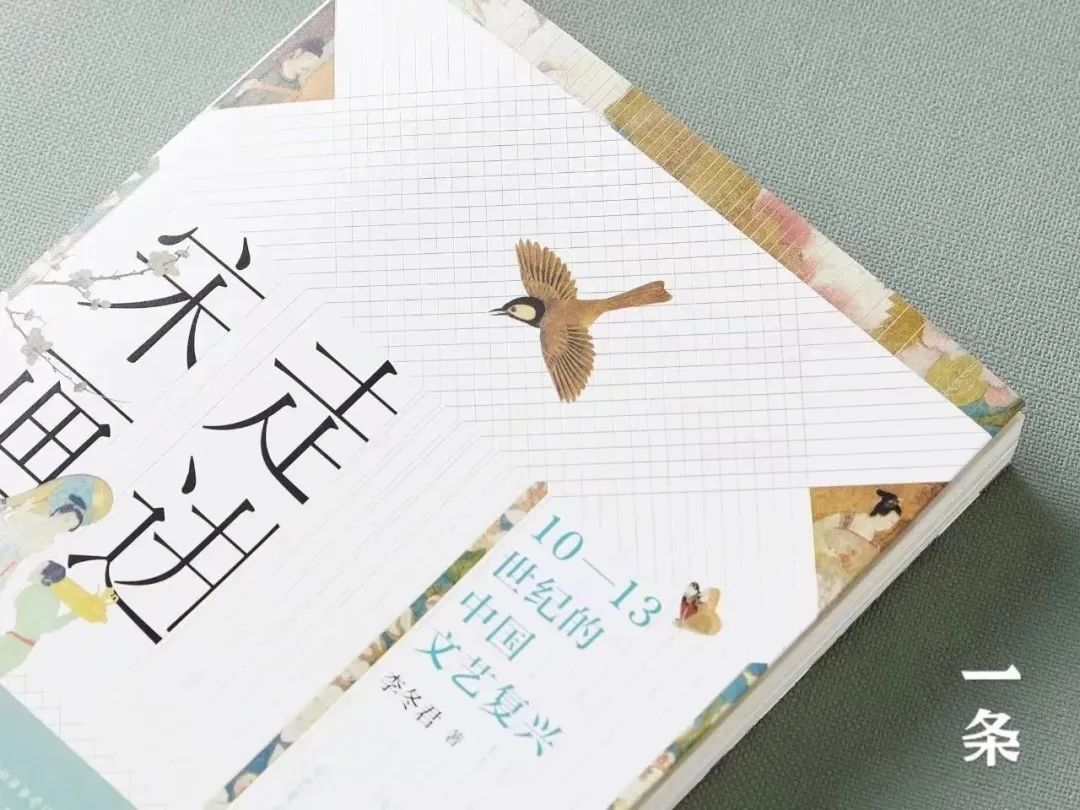 走进
宋画
10—13
世纪的
中国
文艺复兴
李冬君 著
一条